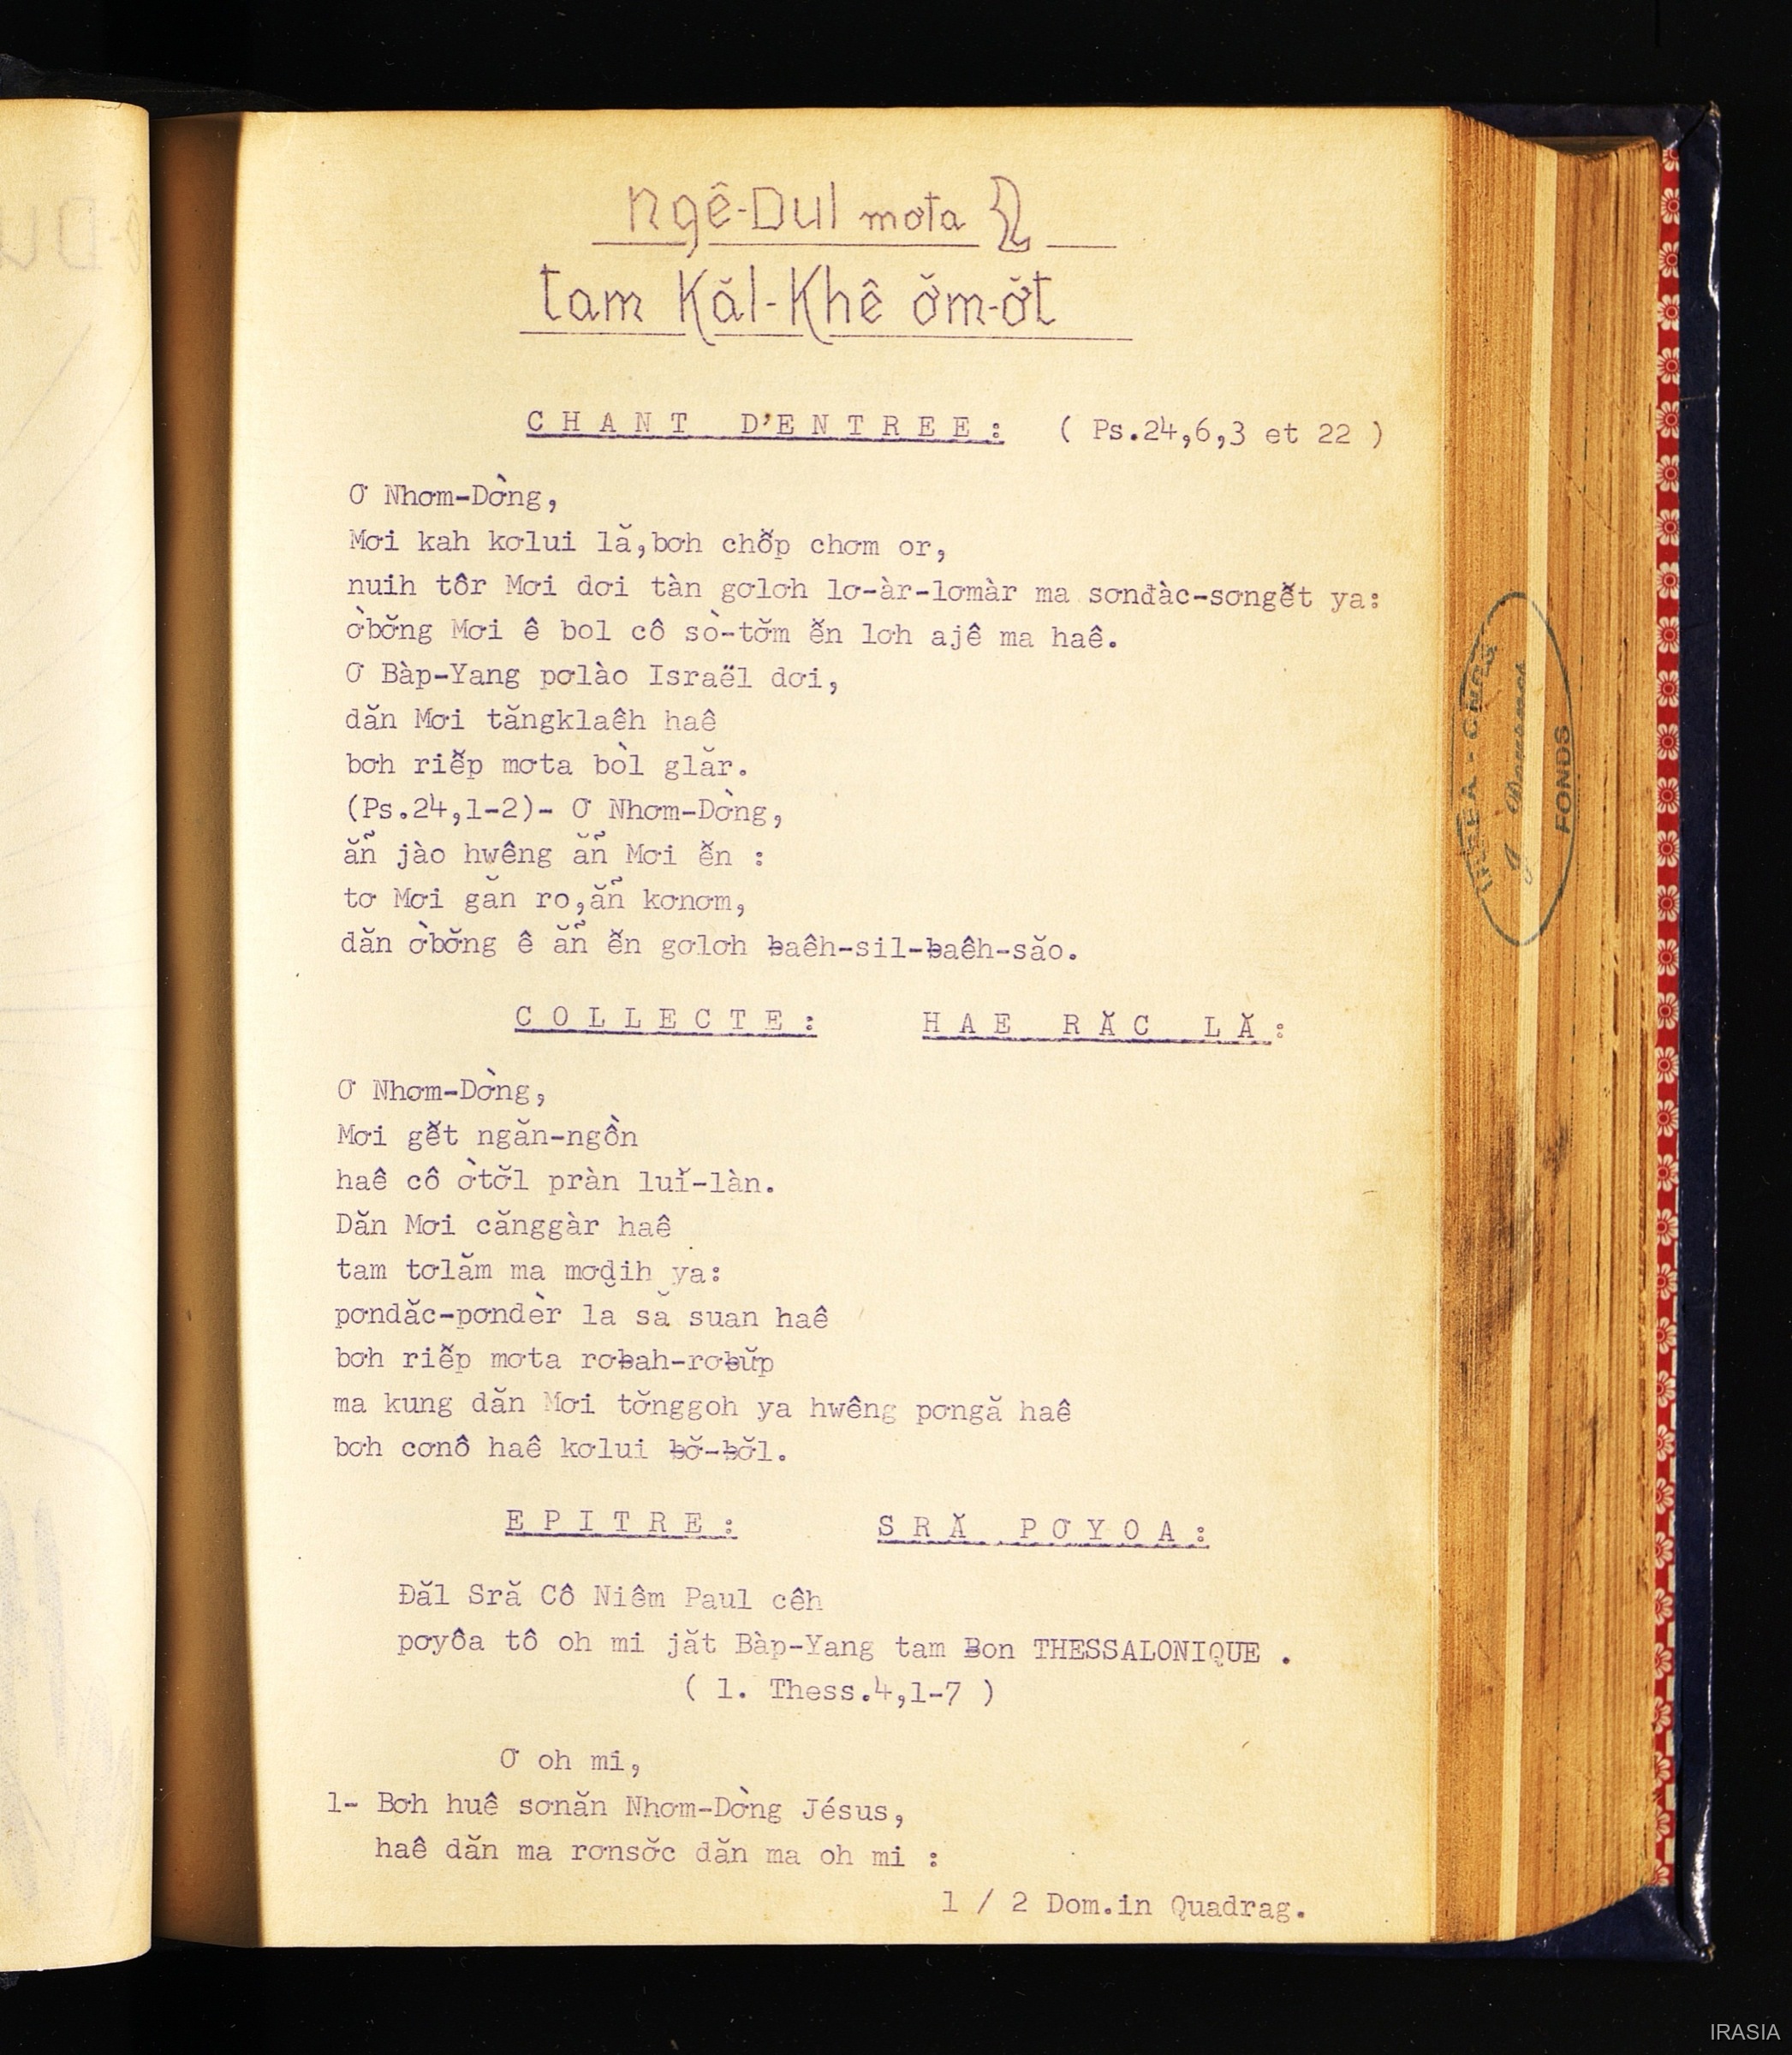 Ngê-Dul mơta 2
tam Kăl-Khê ơ̆m-ơ̆t
CHANT D'ENTREE: ( Ps.24,6,3 et 22 )
Ơ Nhơm-Dờng,
Mơi kah kơlui lă,bơh chô̆p chơm or,
nuih tôr Mơi dơi tàn gơlơh lơ-àr-lơmàr ma sơnđàc-sơngê̆t ya:
ờbơ̆ng Mơi ê bol cô sò-tơ̆m ê̆n lơh ajê ma haê.
Ơ Bàp-Yang pơlào Israël dơi,
dăn Mơi tăngklaêh haê
bơh riê̆p mơta bòl glăr.
(Ps.24,1-2)- Ơ Nhơm-Dờng,
ăñ jào hwêng ăñ Mơi ê̆n :
tơ Mơi găn ro,ăñ kơnơm,
dăn ờbơ̆ng ê ăñ ê̆n gơlơh ƀaêh-sil-ƀaêh-săo.
COLLECTE: HAE RĂC LĂ:
Ơ Nhơm-Dờng,
Mơi gê̆t ngăn-ngồn
haê cô ờtơ̆l pràn luĭ-làn.
Dăn Mơi cănggàr haê
tam tơlăm ma mơd̆ih ya:
pơndăc-pơndèr la să suan haê
bơh riê̆p mơta rơƀah-rơƀŭp
ma kung dăn Mơi tơ̆nggoh ya hwêng pơngă haê
bơh cơnô haê kơlui ƀơ̆-ƀơ̆l.
EPITRE: SRĂ PƠYOA:
Đăl Sră Cô Niêm Paul cêh
pơyôa tô oh mi jăt Bàp-Yang tam Ƀon THESSALONIQUE .
( 1. Thess.4,1-7 )
Ơ oh mi,
1- Bơh huê sơnăn Nhơm-Dờng Jésus,
haê dăn ma rơnsơ̆c dăn ma oh mi :
1 / 2 Dom.in Quadrag.
FONDS
IRASIA